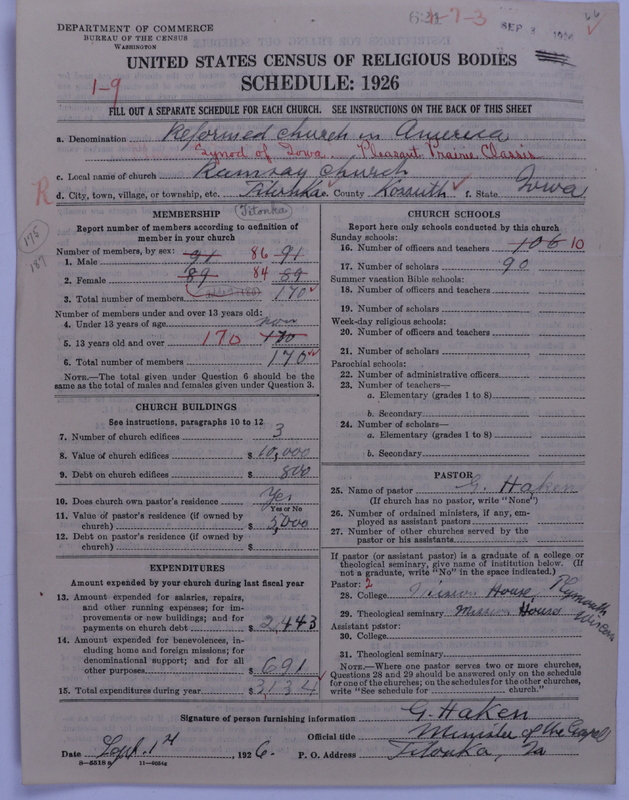 DEPARTMENT OF COMMERCE
BUREAU OF THE CENSUS
WASHINGTON
7-3
SEP
UNITED STATES CENSUS OF RELIGIOUS BODIES
SCHEDULE: 1926
1-9
FILL OUT A SEPARATE SCHEDULE FOR EACH CHURCH. SEE INSTRUCTIONS ON THE BACK OF THIS SHEET
a. Denomination Reformed Church in America
Synod of Iowa. Pleasant Prairie Classis
c. Local name of church Ramsay Church
R
d. City, town, village, or township, etc. Titonka e. County Kossuth f. State Iowa
175
187
MEMBERSHIP (Titonka)
Report number of members according to definition of
member in your church
Number of members, by sex:
1. Male 91 86 91
2. Female 89 84 89
3. Total number of members 170
Number of members under and over 13 years old:
4. Under 13 years of age non
5. 13 years old and over 170 180
6. Total number of members 170
NOTE.—The total given under Question 6 should be the
same as the total of males and females given under Question 3.
CHURCH BUILDINGS
See instructions, paragraphs 10 to 12
7. Number of church edifices 3
8. Value of church edifices $ 10,000
9. Debt on church edifices $ 800
10. Does church own pastor's residence Yes
Yes or No
11. Value of pastor's residence (if owned by
church) $ 5,000
12. Debt on pastor's residence (if owned by
church) $
EXPENDITURES
Amount expended by your church during last fiscal year
13. Amount expended for salaries, repairs,
and other running expenses; for im-
provements or new buildings; and for
payments on church debt $ 2,443
14. Amount expended for benevolences, in-
cluding home and foreign missions; for
denominational support; and for all
other purposes $ 691
15. Total expenditures during year $ 3134
CHURCH SCHOOLS
Report here only schools conducted by this church
Sunday schools:
16. Number of officers and teachers 106 10
17. Number of scholars 90
Summer vacation Bible schools:
18. Number of officers and teachers
19. Number of scholars
Week-day religious schools:
20. Number of officers and teachers
21. Number of scholars
Parochial schools:
22. Number of administrative officers
23. Number of teachers—
a. Elementary (grades 1 to 8)
b. Secondary
24. Number of scholars—
a. Elementary (grades 1 to 8)
b. Secondary
PASTOR
25. Name of pastor G. Haken
(If church has no pastor, write "None")
26. Number of ordained ministers, if any, em-
ployed as assistant pastors
27. Number of other churches served by the
pastor or his assistants
If pastor (or assistant pastor) is a graduate of a college or
theological seminary, give name of institution below. (If
not a graduate, write "No" in the space indicated.)
Pastor: 2
28. College Mission House, Plymouth
29. Theological seminary Mission House
Assistant pastor:
30. College
31. Theological seminary
NOTE.—Where one pastor serves two or more churches,
Questions 28 and 29 should be answered only on the schedule
for one of the churches; on the schedules for the other churches,
write "See schedule for church."
Signature of person furnishing information G. Haken
Official title Minister of the Gospel
Date Sept. 1st, 1926. P. O. Address Titonka, Ia
8—5518 a 11—9554a